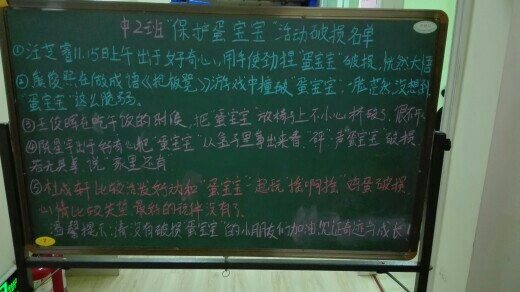 中2班"保护蛋宝宝"活动破损名单
①汪芝睿11.15日上午出于好奇心,用手使劲捏"蛋宝宝"破损,恍然大悟
②俊熙在做成语《抢板凳》游戏中撞破"蛋宝宝",一脸茫然没想到
蛋宝宝"这么脆弱。
③王俊晖在吃午饭的时候,把蛋宝宝"放椅子上不小心挤破了,很
④出于好奇心把"蛋宝宝"从盒子里拿出来看,砰"一声蛋宝宝"破损,
若无其事说"家里还有"
⑤杜成轩比较活泼好动和"蛋宝宝"一起玩"撞啊撞"鸡蛋破损
心情比较失望 最好的伙伴没有了
温馨提示:请没有破损"蛋宝宝"的小朋友们加油见证奇迹与成长!